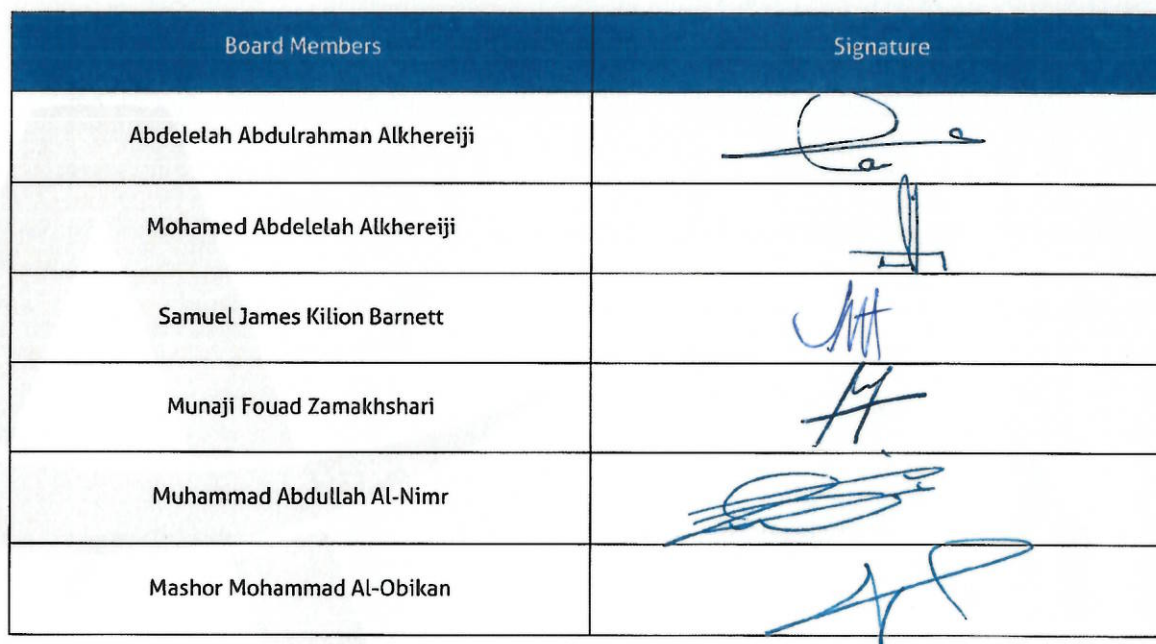 Board Members Signature
Abdelelah Abdulrahman Alkhereiji
Mohamed Abdelelah Alkhereiji
Samuel James Kilion Barnett
Munaji Fouad Zamakhshari
Muhammad Abdullah Al-Nimr
Mashor Mohammad Al-Obikan